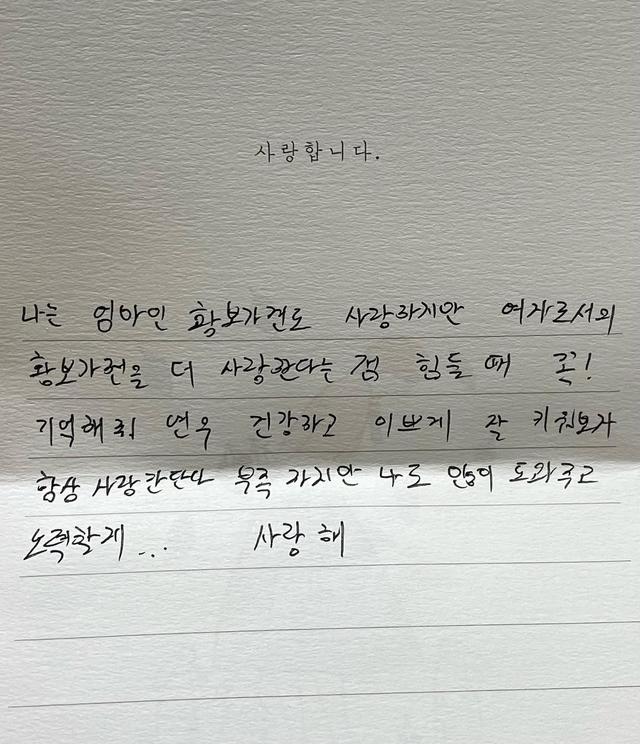 사랑합니다.
나는 엄마인 황보가현도 사랑하지만 여자로서의
황보가현을 더 사랑한다는 점 힘들 때 꼭!
기억해줘 연우 건강하고 이쁘게 잘 키워보자
항상 사랑한단다 부족 하지만 나도 많이 도와주고
노력할게... 사랑 해